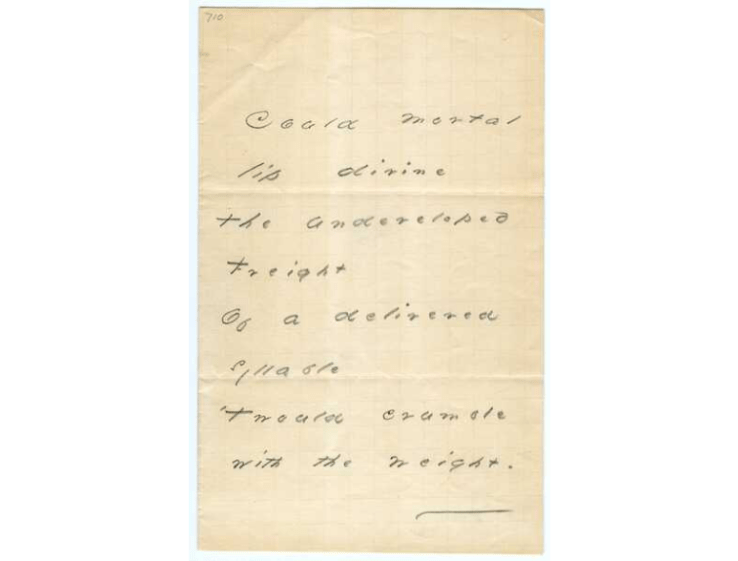 710
Could mortal
lip divine
the undeveloped
Freight
Of a delivered
Syllable
'Twould crumble
with the weight.